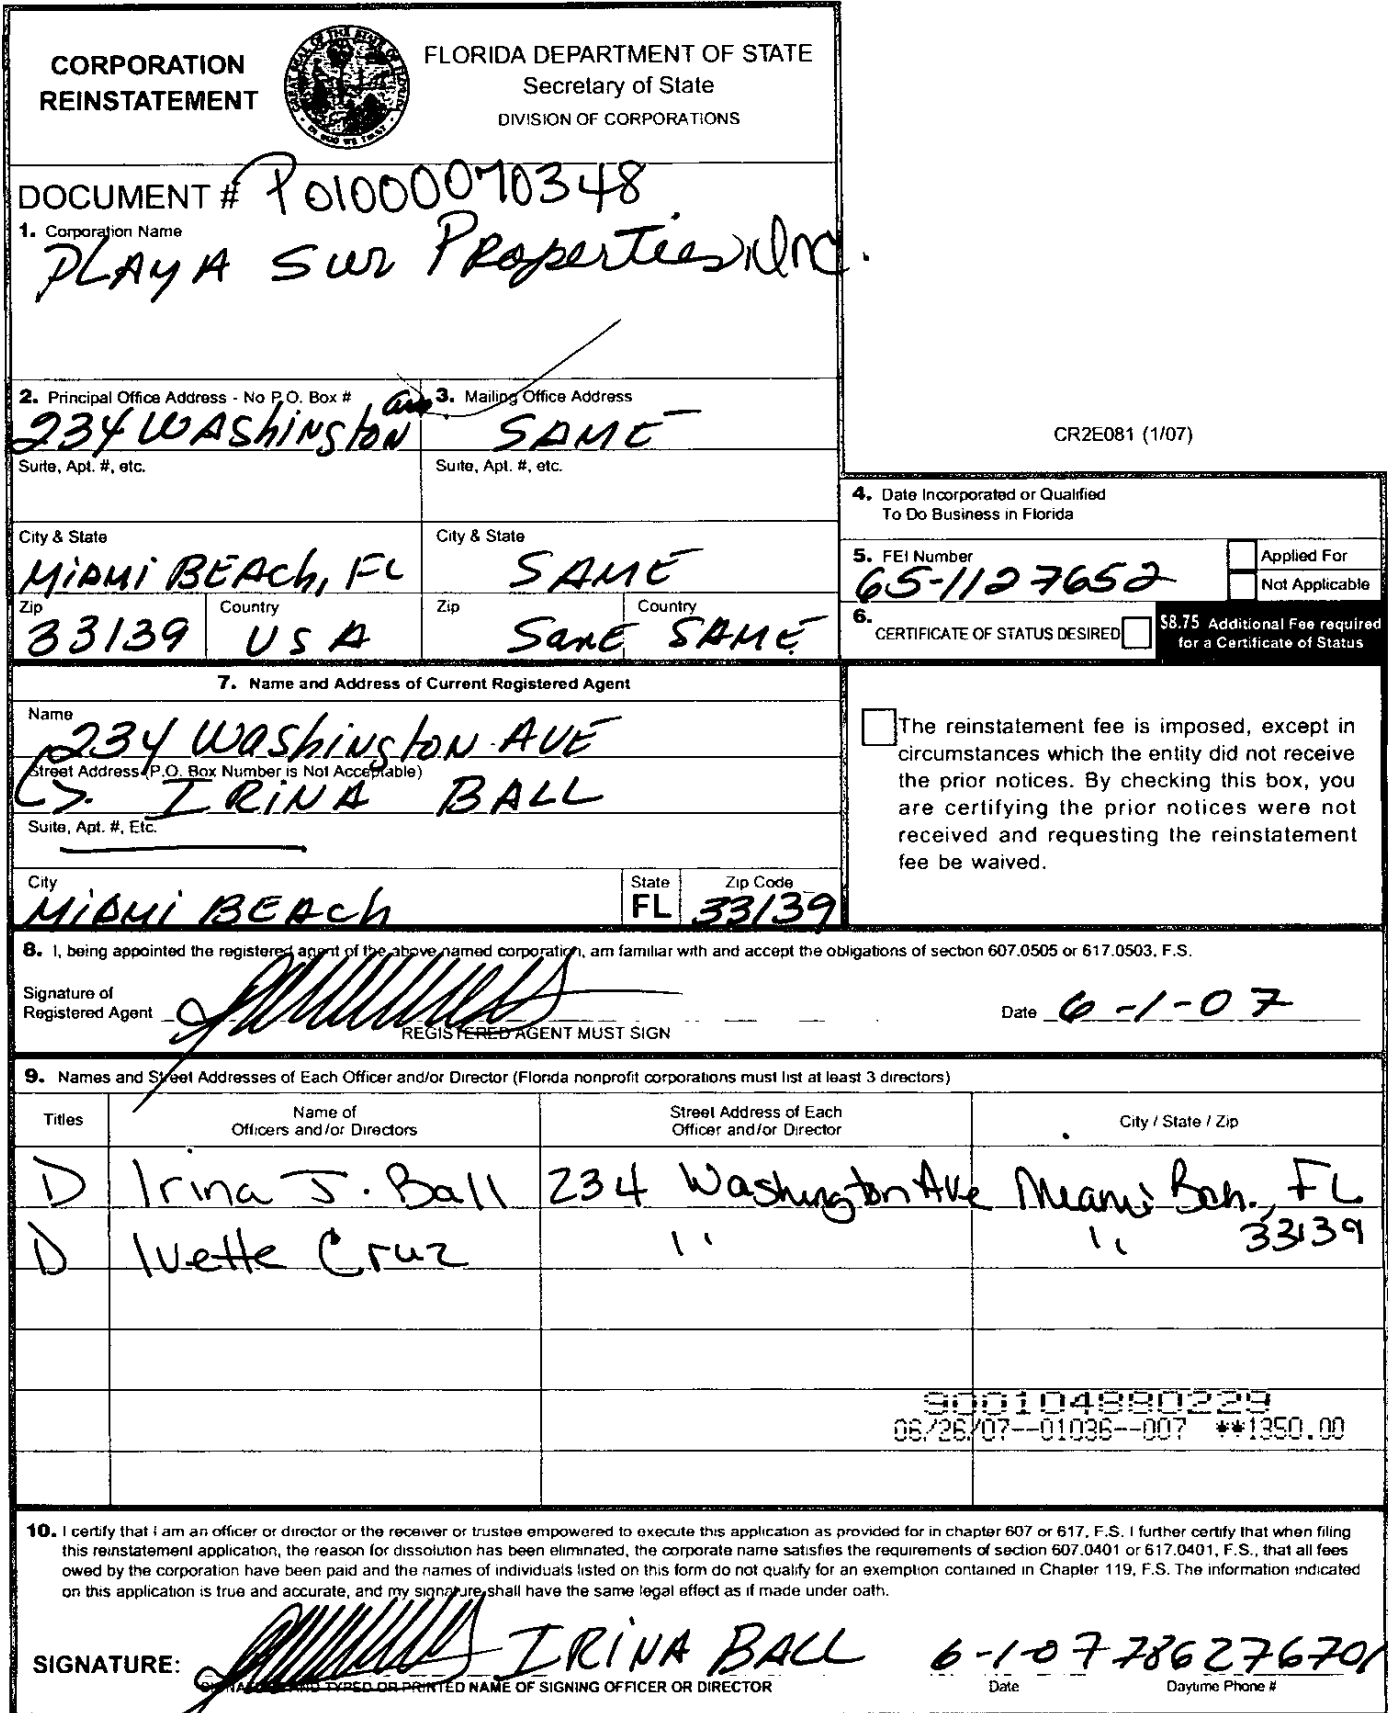 CORPORATION
REINSTATEMENT
FLORIDA DEPARTMENT OF STATE
Secretary of State
DIVISION OF CORPORATIONS
DOCUMENT # P01000070348
1. Corporation Name
PLAYA SUR Properties, Inc.
2. Principal Office Address - No P.O. Box #
234 WAShiNgtoN Ave
3. Mailing Office Address
SAME
CR2E081 (1/07)
Suite, Apt. #, etc.
Suite, Apt. #, etc.
4. Date Incorporated or Qualified
To Do Business in Florida
City & State
MiAMi BEACh, FL
City & State
SAME
5. FEI Number
65-1127652
Applied For
Not Applicable
Zip
33139
Country
USA
Zip
SamE
Country
SAME
6. CERTIFICATE OF STATUS DESIRED
$8.75 Additional Fee required
for a Certificate of Status
7. Name and Address of Current Registered Agent
Name
234 WAShiNgtoN AVE
Street Address (P.O. Box Number is Not Acceptable)
IRiNA BALL
Suite, Apt. #, Etc.
City
MiAMi BEACh
State
FL
Zip Code
33139
The reinstatement fee is imposed, except in
circumstances which the entity did not receive
the prior notices. By checking this box, you
are certifying the prior notices were not
received and requesting the reinstatement
fee be waived.
8. I, being appointed the registered agent of the above named corporation, am familiar with and accept the obligations of section 607.0505 or 617.0503, F.S.
Signature of
Registered Agent
REGISTERED AGENT MUST SIGN
Date 6-1-07
9. Names and Street Addresses of Each Officer and/or Director (Florida nonprofit corporations must list at least 3 directors)
Titles
Name of
Officers and/or Directors
Street Address of Each
Officer and/or Director
City / State / Zip
D Irina J. Ball 234 Washington Ave Miami Bch., FL
33139
D Ivette Cruz " "
900104880229
06/26/07--01036--007 **1350.00
10. I certify that I am an officer or director or the receiver or trustee empowered to execute this application as provided for in chapter 607 or 617, F.S. I further certify that when filing
this reinstatement application, the reason for dissolution has been eliminated, the corporate name satisfies the requirements of section 607.0401 or 617.0401, F.S., that all fees
owed by the corporation have been paid and the names of individuals listed on this form do not qualify for an exemption contained in Chapter 119, F.S. The information indicated
on this application is true and accurate, and my signature shall have the same legal effect as if made under oath.
SIGNATURE: IRiNA BALL 6-1-07 786276701
SIGNATURE AND TYPED OR PRINTED NAME OF SIGNING OFFICER OR DIRECTOR
Date
Daytime Phone #